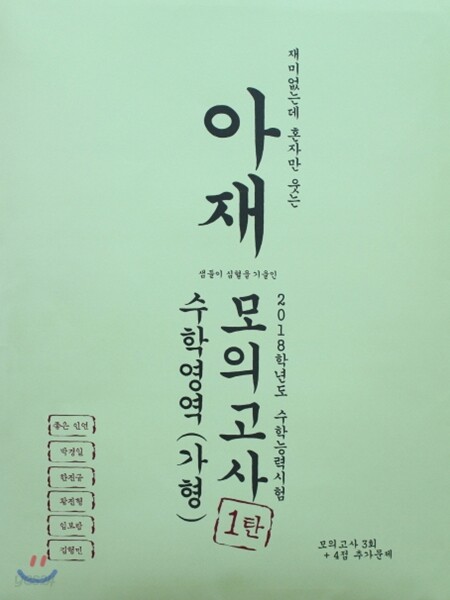 재미없는데 혼자만 웃는
아재
샘들이 심혈을 기울인
2018학년도 수학능력시험
모의고사
1탄
수학영역(가형)
좋은 인연
박경일
한진규
황진철
임보람
김형민
모의고사 3회
+ 4점 추가문제